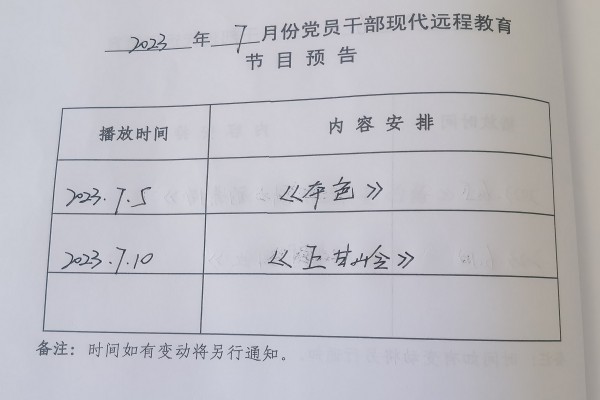 2023年7月份党员干部现代远程教育
节目预告
播放时间 内容安排
2023.7.5 《本色》
2023.7.10
备注：时间如有变动将另行通知。